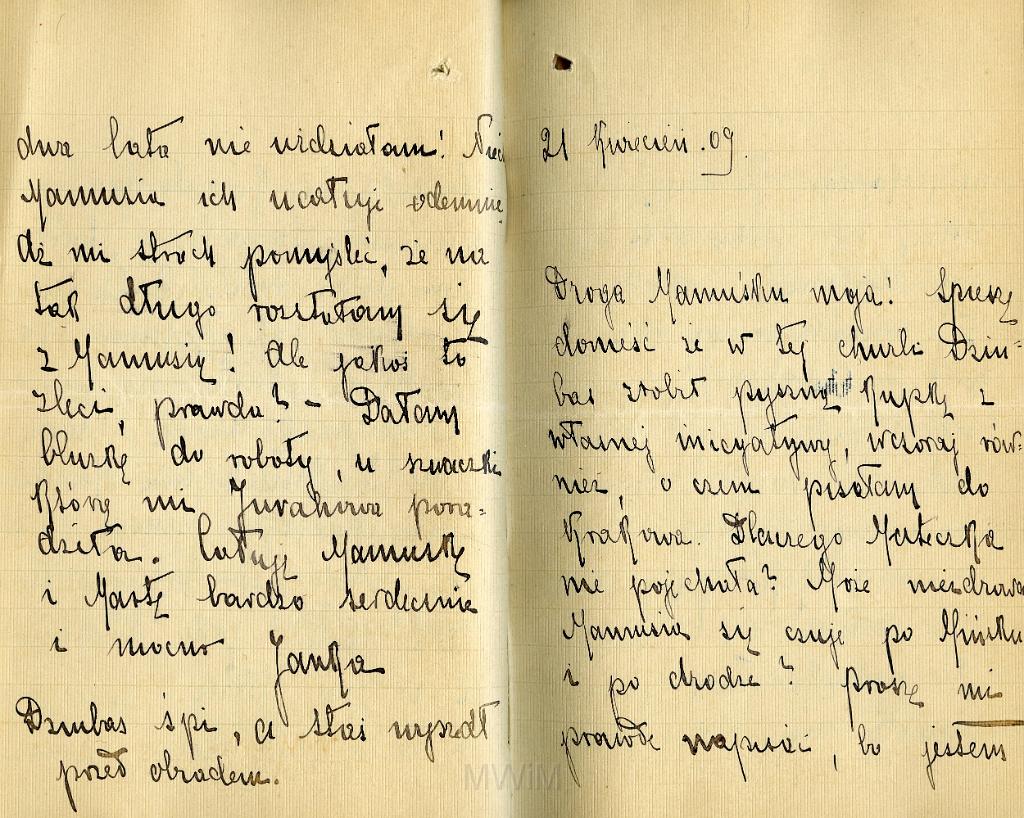 dwa lata nie widziałam! Niech
Mamusia ich ucałuje odemnie
aż mi strach pomyśleć, że na
tak długo rozstałam się
z Mamusią! Ale jakoś to
zleci, prawda? – Dałam
bluzkę do roboty, u szwaczki
którą mi Jurakowa pora=
dziła. Całuję Mamuskę
i Martę bardzo serdecznie
i mocno Janka
Dziubas śpi, a Staś wyszedł
przed obiadem.
21 Kwiecień. 09.
Droga Mamuśku moja! Spieszę
donieść że w tej chwili Dziu=
bas zrobił pyszną kupkę z
własnej inicyatywy, wczoraj rów=
nież, o czem pisałam do
Krakowa. Dlaczego Mateczka
nie pojechała? Może niezdrową
Mamusia się czuje po Mińsku
i po drodze? Proszę mi
prawdę napisać, bo jestem
MWiM